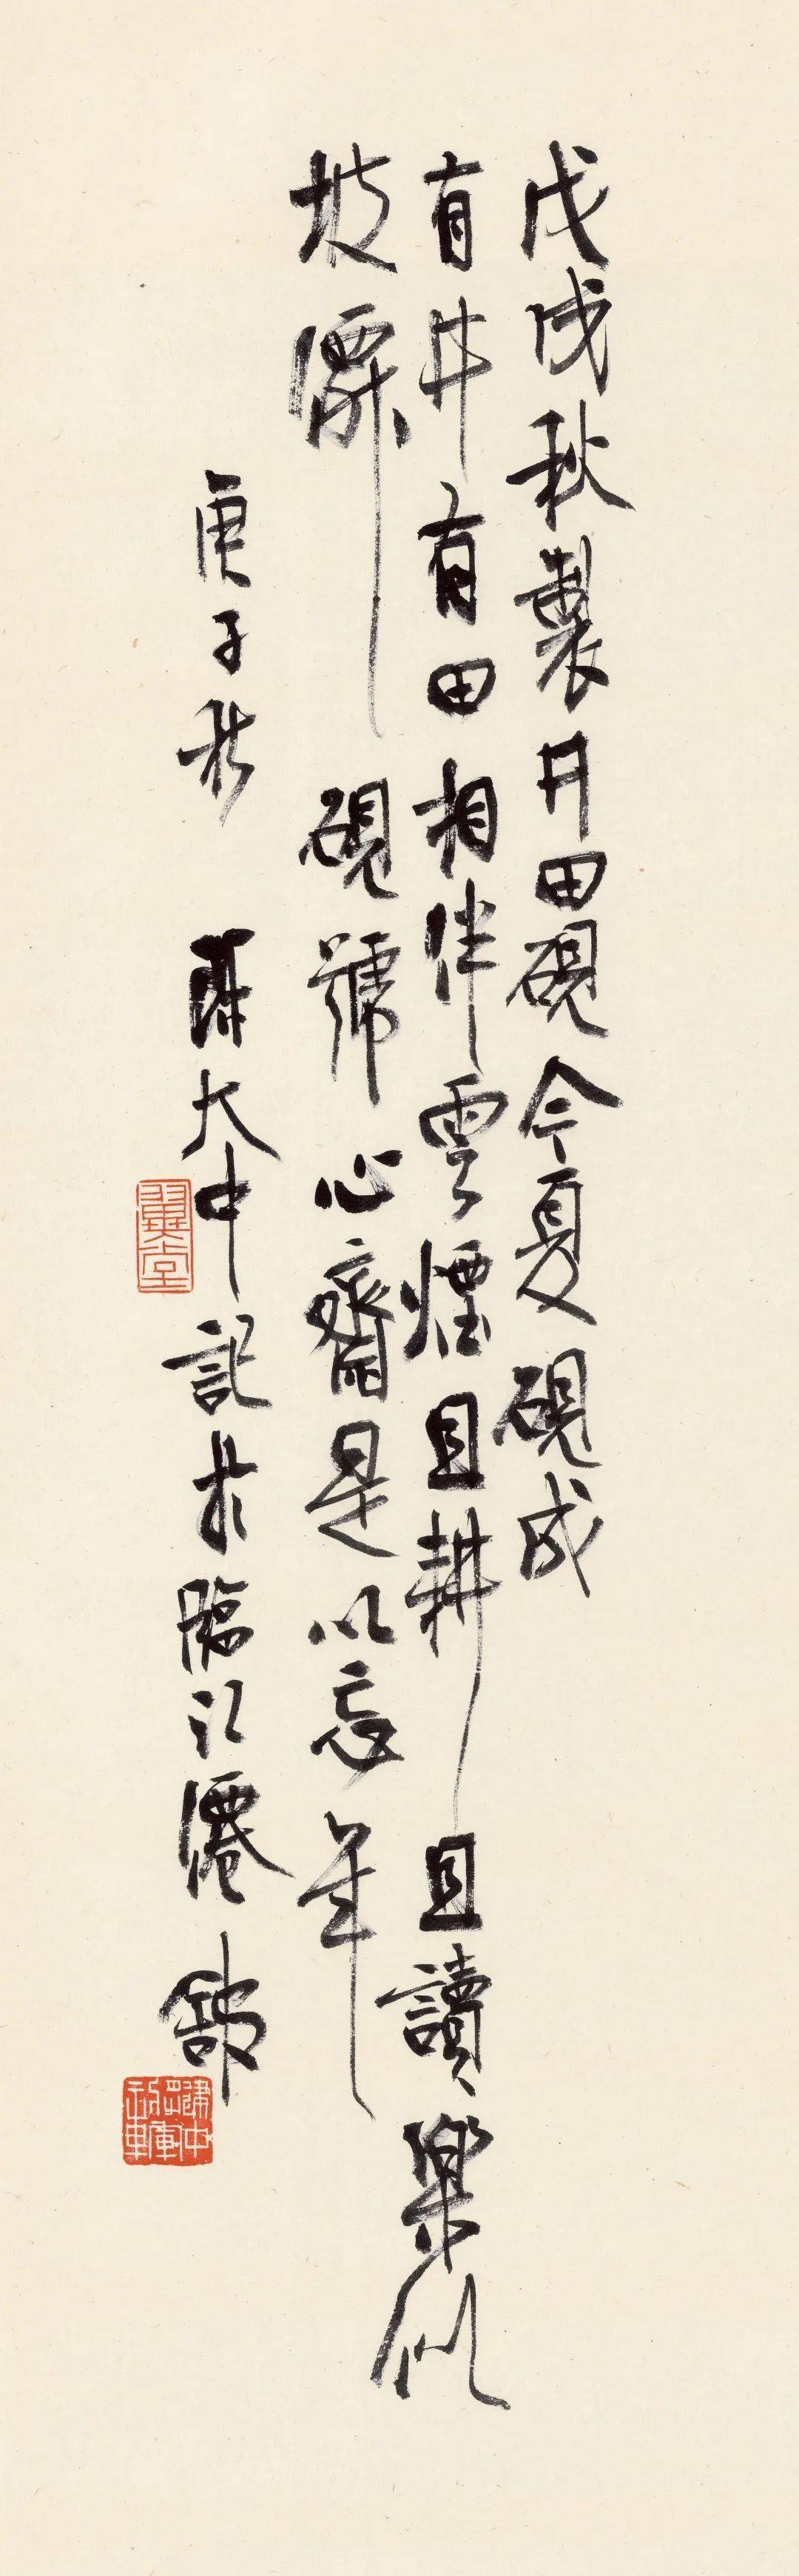 戊戌秋製井田硯今夏硯成
有井有田相伴雲煙且耕且讀樂似
坡僊硯號心齋是以忘年
庚子秋 大中記於臨江僊館
翼堂